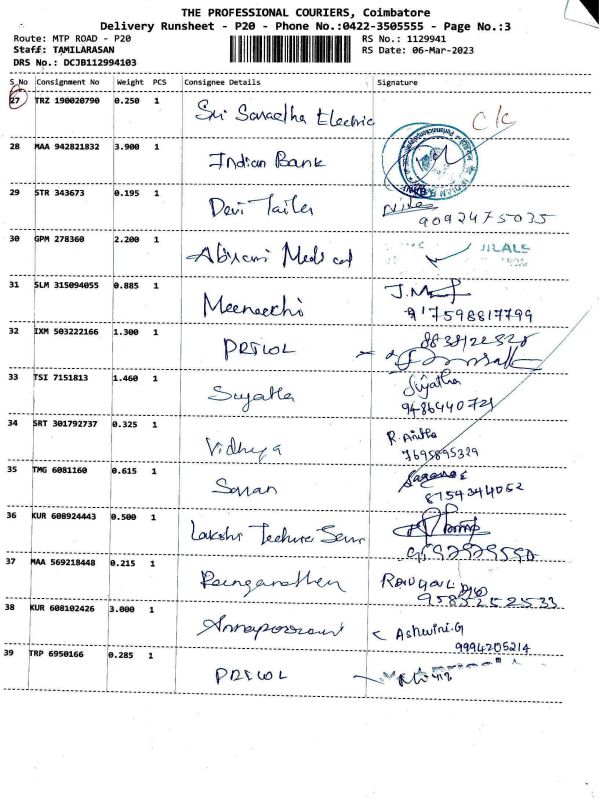 THE PROFESSIONAL COURIERS, Coimbatore
Delivery Runsheet - P20 - Phone No.:0422-3505555 - Page No.:3
Route: MTP ROAD - P20 RS No.: 1129941
Staff: TAMILARASAN RS Date: 06-Mar-2023
DRS No.: DCJB112994103
S_No Consignment No Weight PCS Consignee Details Signature
27 TRZ 190020790 0.250 1 Sri Saradha Electric C/C
28 MAA 942821832 3.900 1 Indian Bank
29 STR 343673 0.195 1 Devi Tailer
9092475035
30 GPM 278360 2.200 1 Abirami Medical
31 SLM 315094055 0.885 1 Meenakchi
917598817799
32 IXM 503222166 1.300 1 PRICOL
33 TSI 7151813 1.460 1 Sujatha Sujatha
9486440721
34 SRT 301792737 0.325 1 Vidhya R. Anitha
7695895329
35 TMG 6081160 0.615 1 Saran
8754344052
36 KUR 608924443 0.500 1 Lakshi
37 MAA 569218448 0.215 1
9585252533
38 KUR 608102426 3.000 1 Ashwini.G
9994205214
39 TRP 6950166 0.285 1 PRICOL